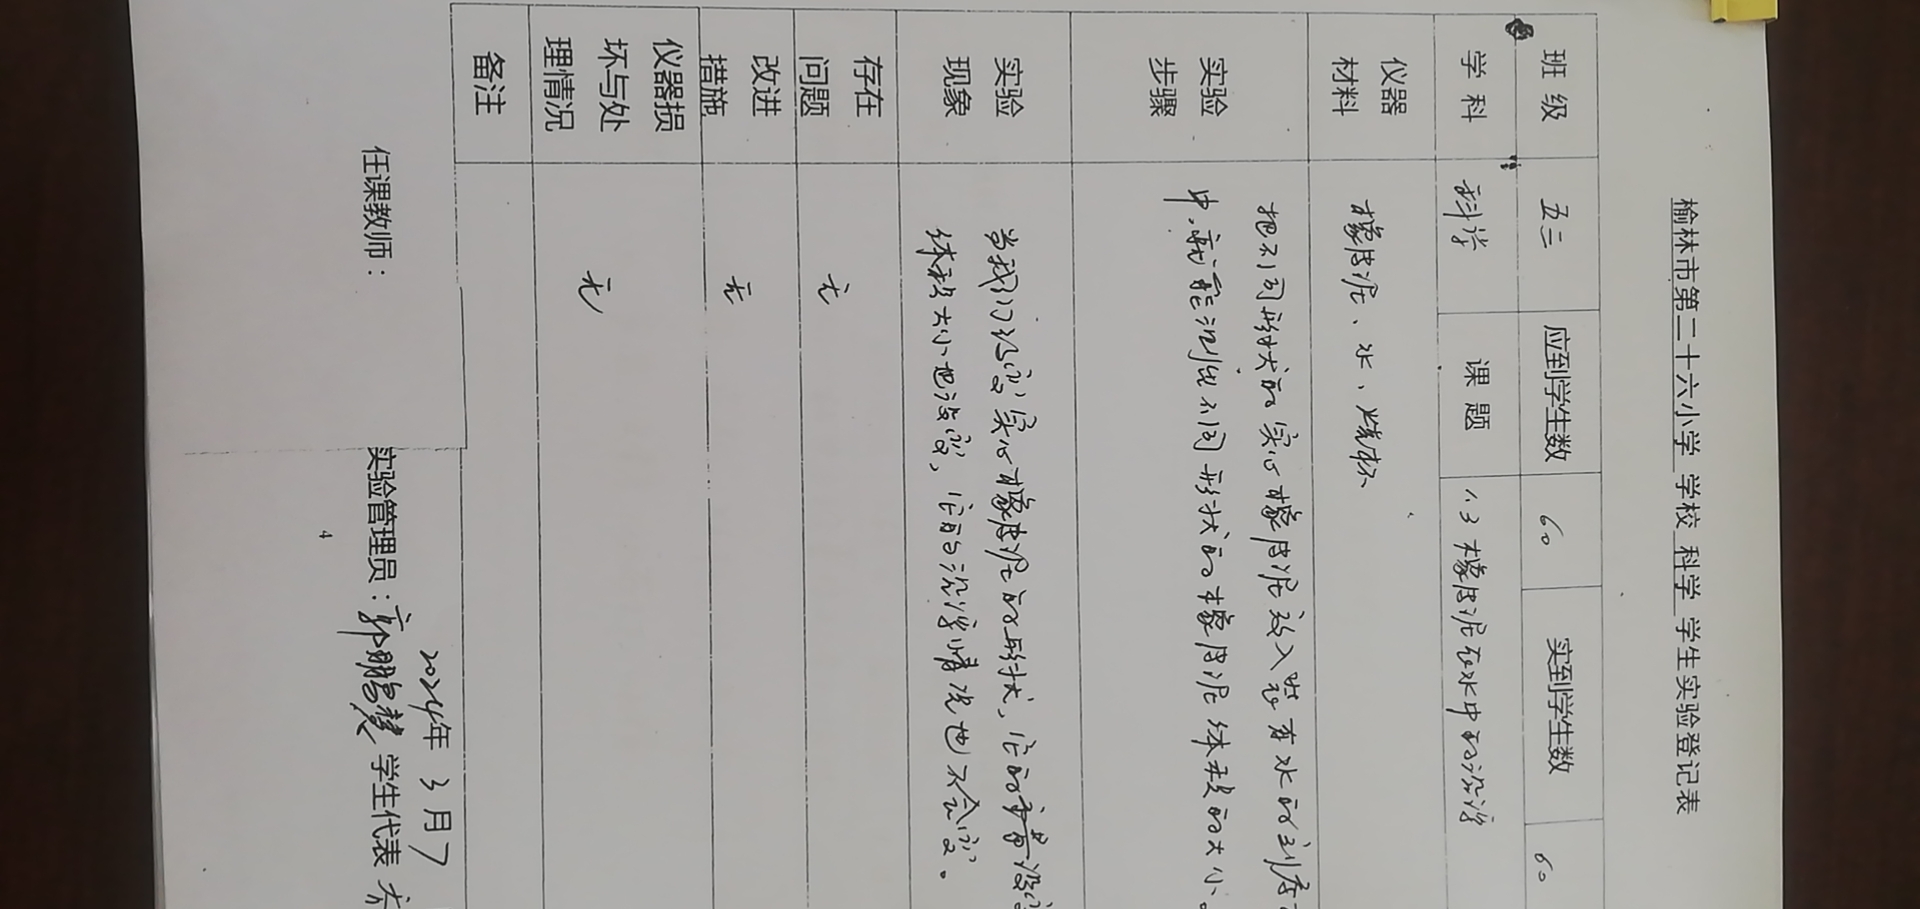 榆林市第二十六小学 学校 科学 学生实验登记表
班级 五三 应到学生数 60 实到学生数 60
学科 科学 课题 1.3橡皮泥在水中的沉浮
仪器材料 橡皮泥、水、烧杯
实验步骤
把不同形状的实心橡皮泥放入装有水的刻度
中,就能测出不同形状的橡皮泥体积的大小。
实验现象
当我们改变实心橡皮泥的形状,它的重量没变
体积大小也没变,它的沉浮情况也不会变。
存在问题 无
改进措施 无
仪器损坏与处理情况 无
备注
2024年3月7
任课教师: 实验管理员:郭鹏慧 学生代表
4